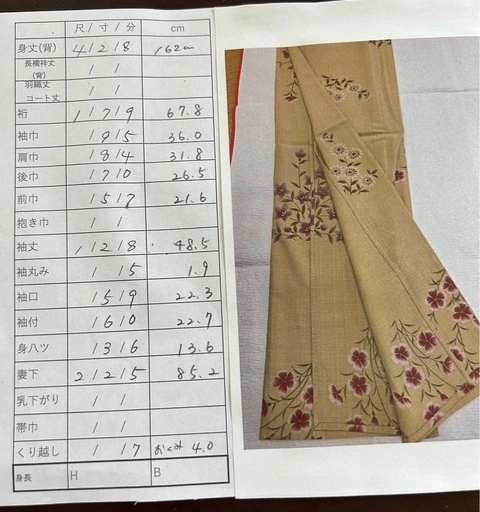 尺/寸/分 cm
身丈(背) 4/2/8 162cm
長襦袢丈(背) / /
羽織丈 コート丈 / /
裄 1/7/9 67.8
袖巾 /9/5 36.0
肩巾 /8/4 31.8
後巾 /7/0 26.5
前巾 /5/7 21.6
抱き巾 / /
袖丈 1/2/8 48.5
袖丸み / /5 1.9
袖口 /5/9 22.3
袖付 /6/0 22.7
身八ツ /3/6 13.6
妻下 2/2/5 85.2
乳下がり / /
帯巾 / /
くり越し / /7 おくみ 4.0
身長 H B